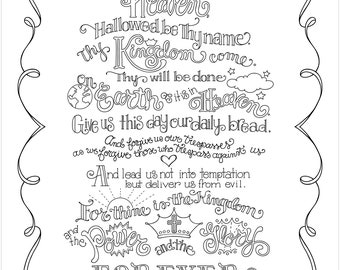 Heaven,
Hallowed be Thy name.
Thy Kingdom come,
Thy will be done
On Earth as it is in Heaven
Give us this day our daily bread.
And forgive us our trespasses
as we forgive those who trespass against us
And lead us not into temptation
but deliver us from evil.
For thine is the Kingdom
and the Power and the Glory